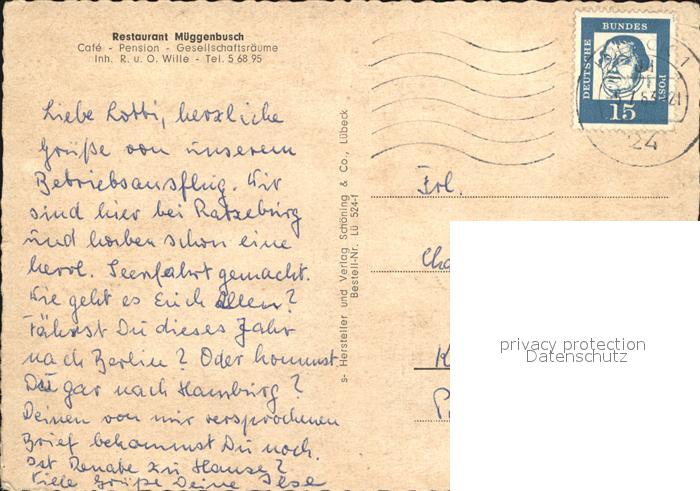 Restaurant Müggenbusch
Café - Pension - Gesellschaftsräume
Inh. R. u. O. Wille - Tel. 5 68 95
Liebe Lotti, herzliche
Grüße von unserem
Betriebsausflug. Wir
sind hier bei Ratzeburg
und haben schon eine
herrl. Seenfahrt gemacht.
Wie geht es Euch Allen?
Fährst Du dieses Jahr
nach Berlin? Oder kommst
Du gar nach Hamburg?
Deinen von mir versprochenen
Brief bekommst Du noch.
Ist Renate zu Hause?
Viele Grüße Deine Ilse
Hersteller und Verlag Schöning & Co., Lübeck
Bestell-Nr. Lü 524-f
DEUTSCHE
BUNDES
POST
15
24
Frl.
privacy protection
Datenschutz